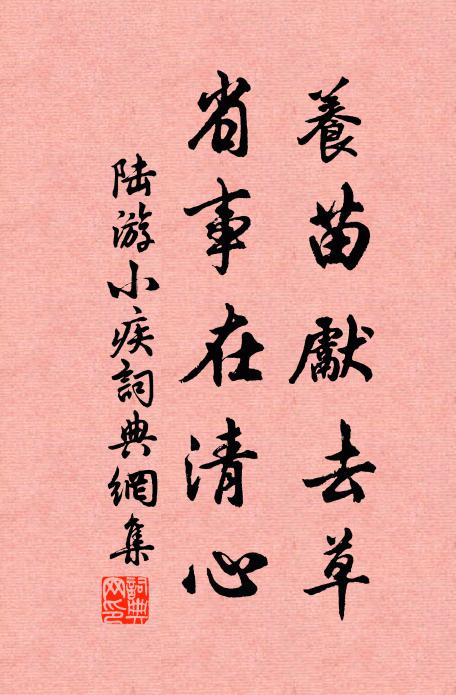 養苗獻去草
省事在清心
陸游小疾詞典網集
詞典
网印